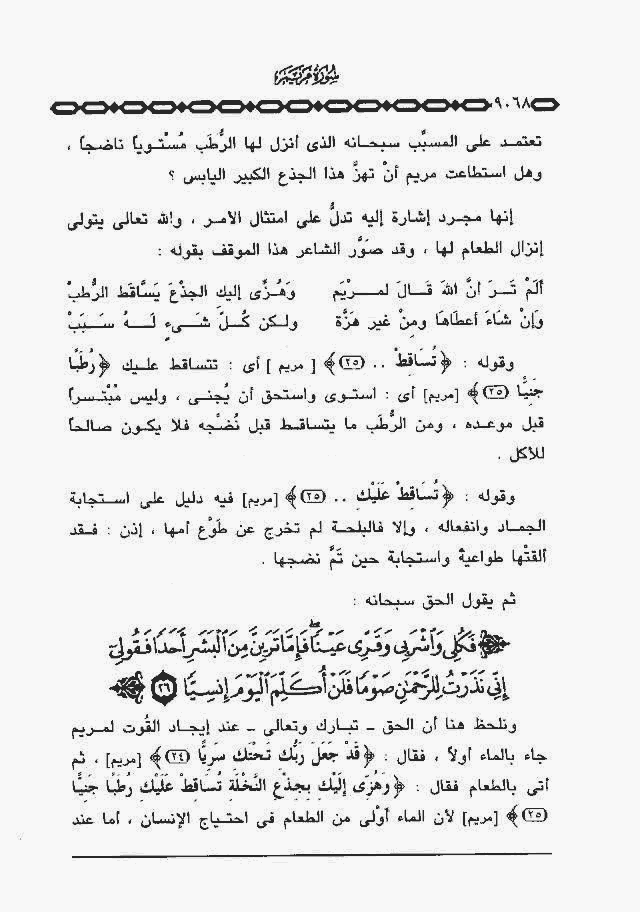 سورة مريم
٩٠٦٨
تعتمد على المسبِّب سبحانه الذى أنزل لها الرُّطَب مُسْتوياً ناضجاً ،
وهل استطاعت مريم أنْ تهزَّ هذا الجذع الكبير اليابس ؟
إنها مجرد إشارة إليه تدلُّ على امتثال الأمر ، والله تعالى يتولى
إنزال الطعام لها ، وقد صَوَّر الشاعر هذا الموقف بقوله :
أَلَمْ تَرَ أنَّ اللهَ قَالَ لمرْيَم وَهُزِّى إليكِ الجِذْعَ يَسَّاقَط الرطَبْ
وَإنْ شَاءَ أعطَاهَا ومِنْ غير هَزَّة ولكن كُلُّ شَىءٍ لَهُ سَبَبْ
وقوله : ﴿ تُسَاقِطْ .. (٢٥) ﴾ [ مريم ] أى : تتساقط عليك ﴿ رُطَبًا
جَنِيًّا (٢٥) ﴾ [مريم] أى : استوى واستحق أن يُجنى ، وليس مُبْتسراً
قبل موعده ، ومن الرُّطَب ما يتساقط قبل نُضْجه فلا يكون صالحاً
للأكل .
وقوله : ﴿ تُسَاقِطْ عَلَيْكِ .. (٢٥) ﴾ [مريم] فيه دليل على استجابة
الجماد وانفعاله ، وإلا فالبلحة لم تخرج عن طَوْع أمها ، إذن : فقد
ألقتْها طواعيةً واستجابة حين تَمَّ نضجها .
ثم يقول الحق سبحانه :
﴿ فَكُلِى وَٱشْرَبِى وَقَرِّى عَيْنًا ۖ فَإِمَّا تَرَيِنَّ مِنَ ٱلْبَشَرِ أَحَدًا فَقُولِىٓ
إِنِّى نَذَرْتُ لِلرَّحْمَٰنِ صَوْمًا فَلَنْ أُكَلِّمَ ٱلْيَوْمَ إِنسِيًّا (٢٦) ﴾
ونلحظ هنا أن الحق - تبارك وتعالى - عند إيجاد القُوت لمريم
جاء بالماء أولاً ، فقال : ﴿ قَدْ جَعَلَ رَبُّكِ تَحْتَكِ سَرِيًّا (٢٤) ﴾ [مريم] ، ثم
أتى بالطعام فقال : ﴿ وَهُزِّى إِلَيْكِ بِجِذْعِ النَّخْلَةِ تُسَاقِطْ عَلَيْكِ رُطَبًا جَنِيًّا
(٢٥) ﴾ [مريم] لأن الماء أوْلَى من الطعام فى احتياج الإنسان ، أما عند